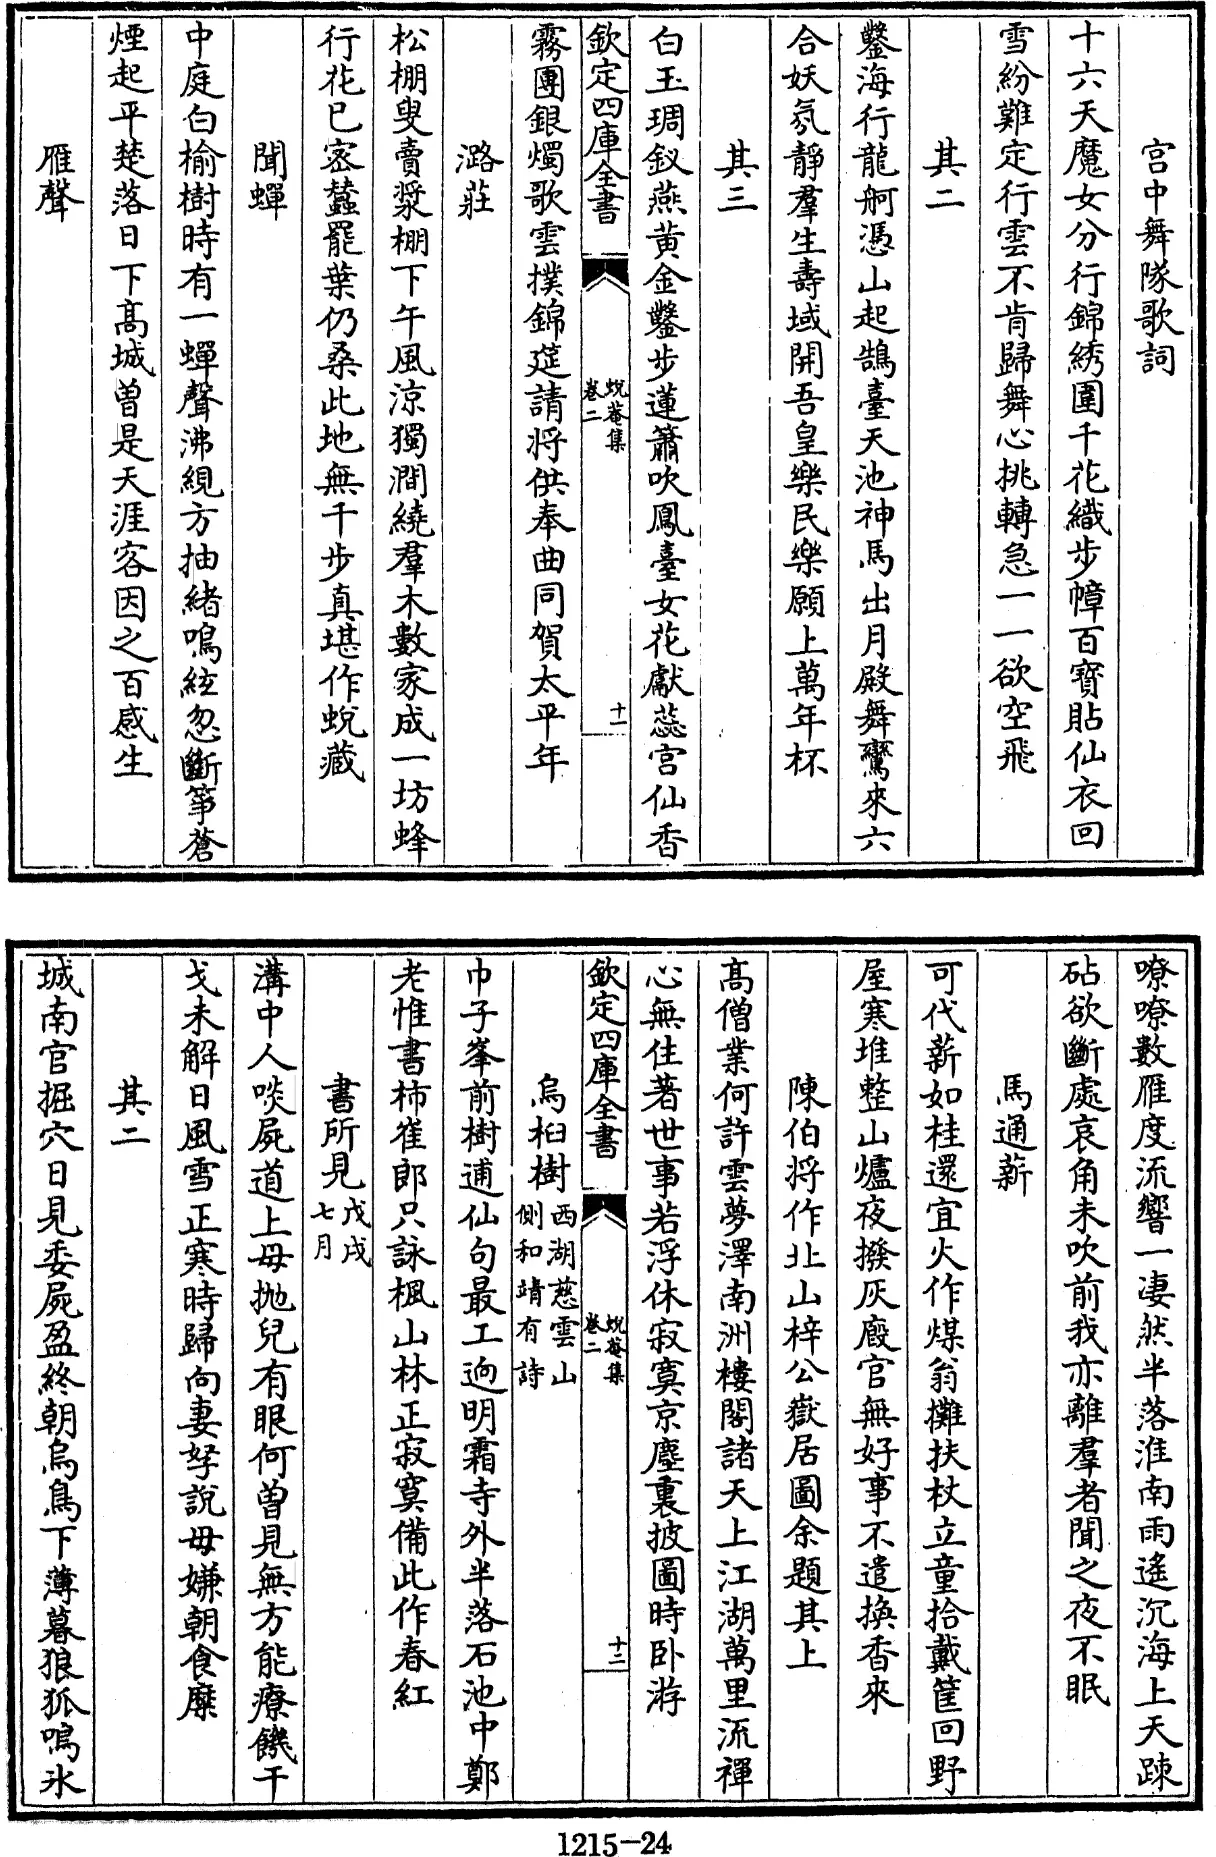 宫中舞隊歌詞
十六天魔女分行錦綉圍千花織步幛百寶貼仙衣回
雪紛難定行雲不肯歸舞心挑轉急一一欲空飛
其二
鑿海行龍舸憑山起鵠臺天池神馬出月殿舞鸞來六
合妖氛靜羣生壽域開吾皇樂民樂願上萬年杯
其三
白玉琱釵燕黄金鑿步蓮簫吹鳳臺女花獻蕊宫仙香
欽定四庫全書
蛻菴集
卷二
十一
霧團銀燭歌雲撲錦筵請將供奉曲同賀太平年
潞莊
松棚叟賣漿棚下午風涼獨澗繞羣木數家成一坊蜂
行花已宻蠶罷葉仍桑此地無千步真堪作蛻藏
聞蟬
中庭白榆樹時有一蟬聲沸絸方抽緒鳴絃忽斷箏蒼
煙起平楚落日下髙城曽是天涯客因之百感生
雁聲
嘹嘹數雁度流響一凄然半落淮南雨遙沉海上天踈
砧欲斷處哀角未吹前我亦離羣者聞之夜不眠
馬通薪
可代薪如桂還宜火作煤翁攤扶杖立童拾戴筐回野
屋寒堆整山爐夜撥灰廐官無好事不遣換香來
陳伯將作北山梓公嶽居圖余題其上
髙僧業何許雲夢澤南洲樓閣諸天上江湖萬里流禪
心無住著世事若浮休寂寞京塵裏披圖時卧游
欽定四庫全書
蛻菴集
卷二
十二
烏桕樹西湖慈雲山
側和靖有詩
巾子峯前樹逋仙句最工逈明霜寺外半落石池中鄭
老惟書柿崔郎只詠楓山林正寂寞備此作春紅
書所見戊戌
七月
溝中人啖屍道上母抛兒有眼何曽見無方能療饑干
戈未解日風雪正寒時歸向妻孥說毋嫌朝食糜
其二
城南官掘穴日見委屍盈終朝烏鳥下薄暮狼狐鳴氷
1215-24